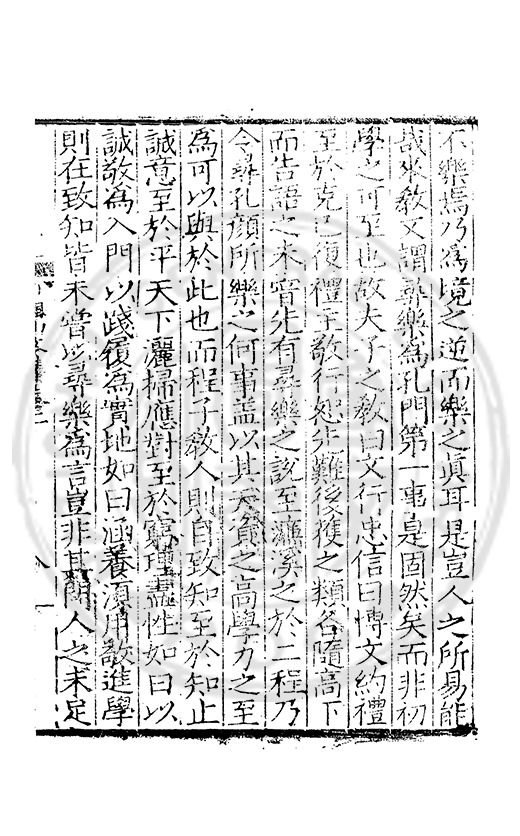 不樂焉乃為境之逆而樂之眞耳是豈人之所易能
哉來敎又謂尋樂為孔門第一事是固然矣而非初
學之可至也故夫子之敎曰文行忠信曰博文約禮
至於克己復禮主敬行恕先難後獲之類各隨高下
而告語之未嘗先有尋樂之說至濂溪之於二程乃
令尋孔顔所樂之何事盖以其天資之高學力之至
為可以與於此也而程子敎人則自致知至於知止
誠意至於平天下灑掃應對至於窮理盡性如曰以
誠敬為入門以踐履為實地如曰涵養湏用敬進學
則在致知皆未嘗以尋樂為言豈非其門人之未足